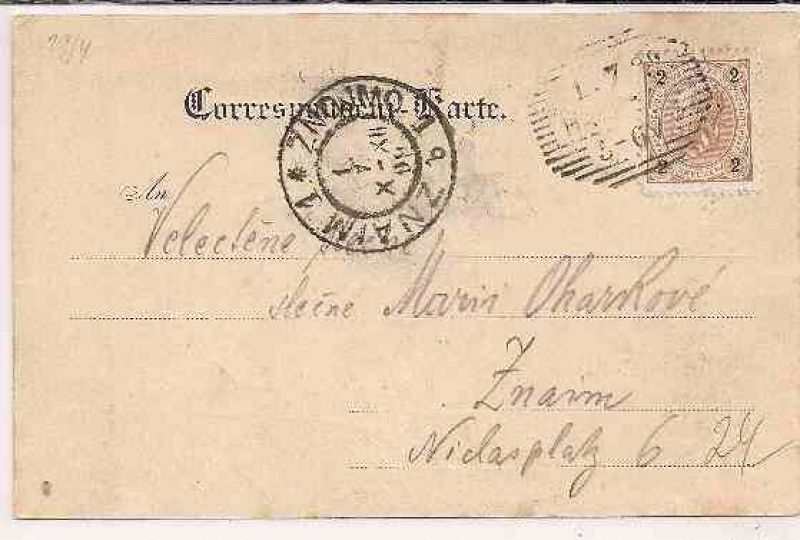 Correspondenz-Karte.
ZNOJMO 1
ZNAIM 1
2 2
2 2
An
Velectěné
slečně Marii Oharkové
Znaim
Niclasplatz 6 24